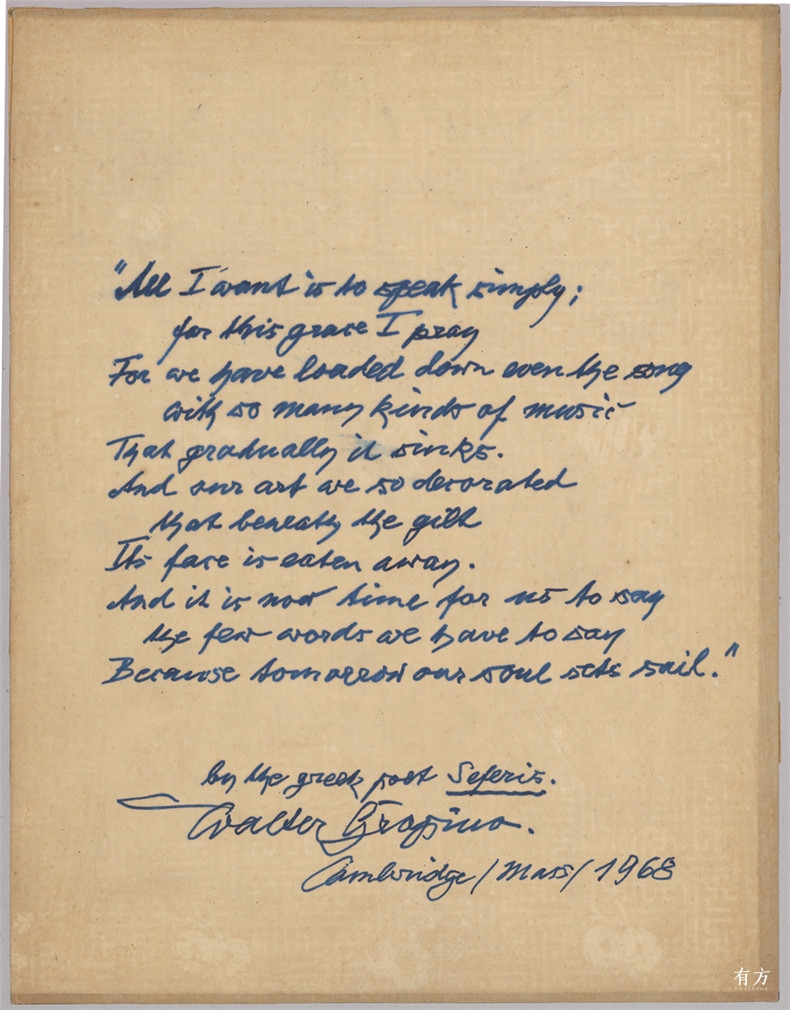 "All I want is to speak simply;
for this grace I pray
For we have loaded down even the song
with so many kinds of music
That gradually it sinks.
And our art we so decorated
that beneath the gilt
Its face is eaten away.
And it is now time for us to say
the few words we have to say
Because tomorrow our soul sets sail."
by the greek poet Seferis.
Walter Gropius.
Cambridge/Mass/1968
有方